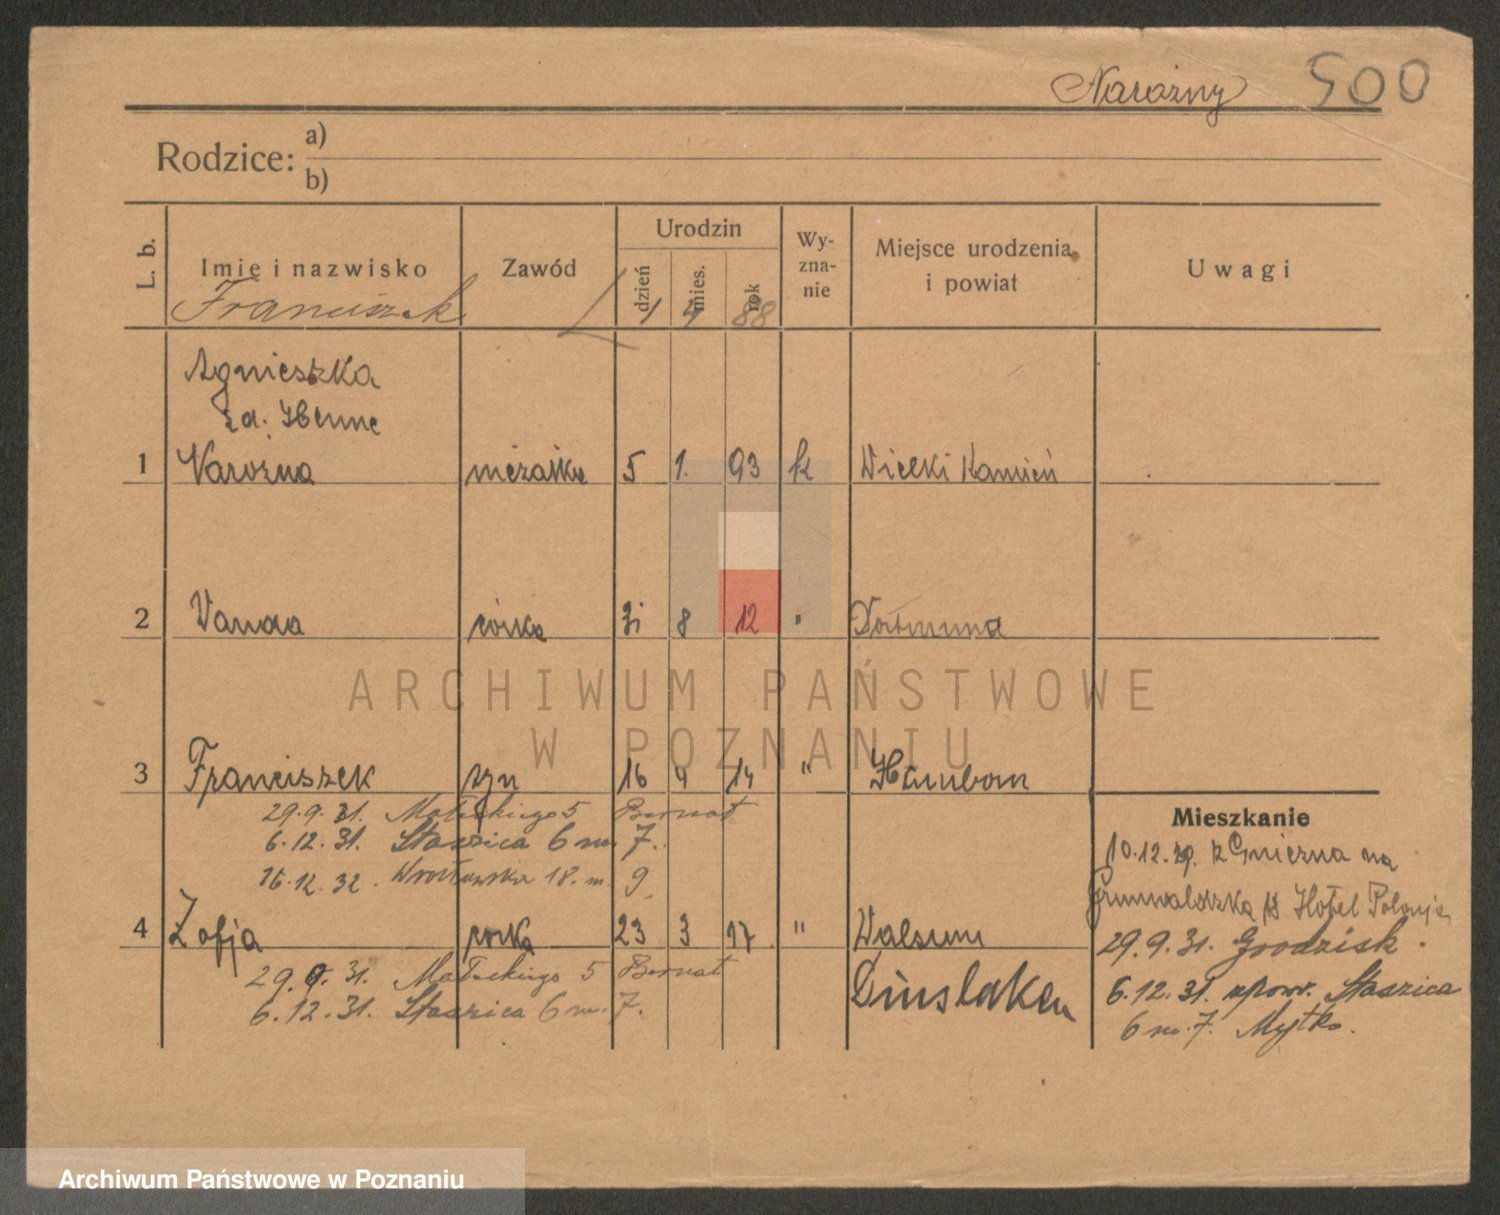 Narożny 500
Rodzice: a)
b)
L. b. Imię i nazwisko Zawód Urodzin dzień mies. rok Wy-zna-nie Miejsce urodzenia i powiat Uwagi
Franciszek 1 4 88
Agnieszka
1 Narożna mężatka 5 1. 93 k Wielki Kamień
2 Wanda córka 31 8 12 " Dortmund
ARCHIWUM PAŃSTWOWE
W POZNANIU
3 Franciszek syn 16 4 14 " Hamborn
29.9.31. Małeckiego 5 Bernat
6.12.31. Staszica 6 m. 7.
16.12.32. Wrocławska 18. m. 9
4 Zofja córka 23 3 17 " Walsum
29.9.31. Małeckiego 5 Bernat
6.12.31. Staszica 6 m. 7.
Dinslaken
Mieszkanie
10.12. z Gniezna na
Grunwaldzka Hotel Polonja
29.9.31. Grodzisk.
6.12.31. spow. Staszica
6 m. 7. Mytko.
Archiwum Państwowe w Poznaniu